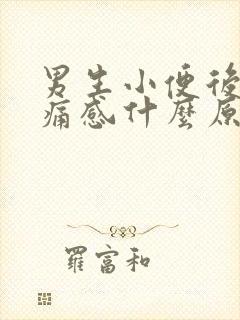 男生小便後
痛感什麼原
羅富和